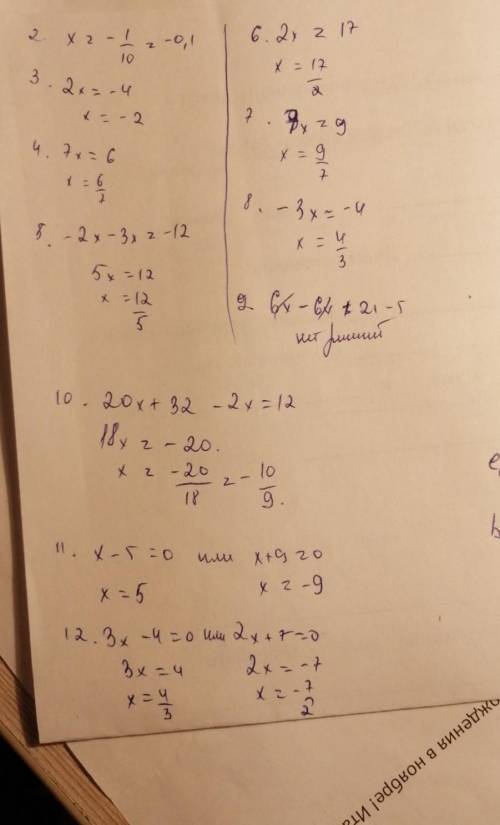 2. x = -1/10 = -0,1
3. 2x = -4
x = -2
4. 7x = 6
x = 6/7
5. -2x - 3x = -12
5x = 12
x = 12/5
6. 2x = 17
x = 17/2
7. 7x = 9
x = 9/7
8. -3x = -4
x = 4/3
9. 6x - 6x ≠ 21 - 5
нет решений
10. 20x + 32 - 2x = 12
18x = -20.
x = -20/18 = -10/9.
11. x - 5 = 0 или x + 9 = 0
x = 5 x = -9
12. 3x - 4 = 0 или 2x + 7 = 0
3x = 4 2x = -7
x = 4/3 x = -7/2
ождения в ноябре! Ита